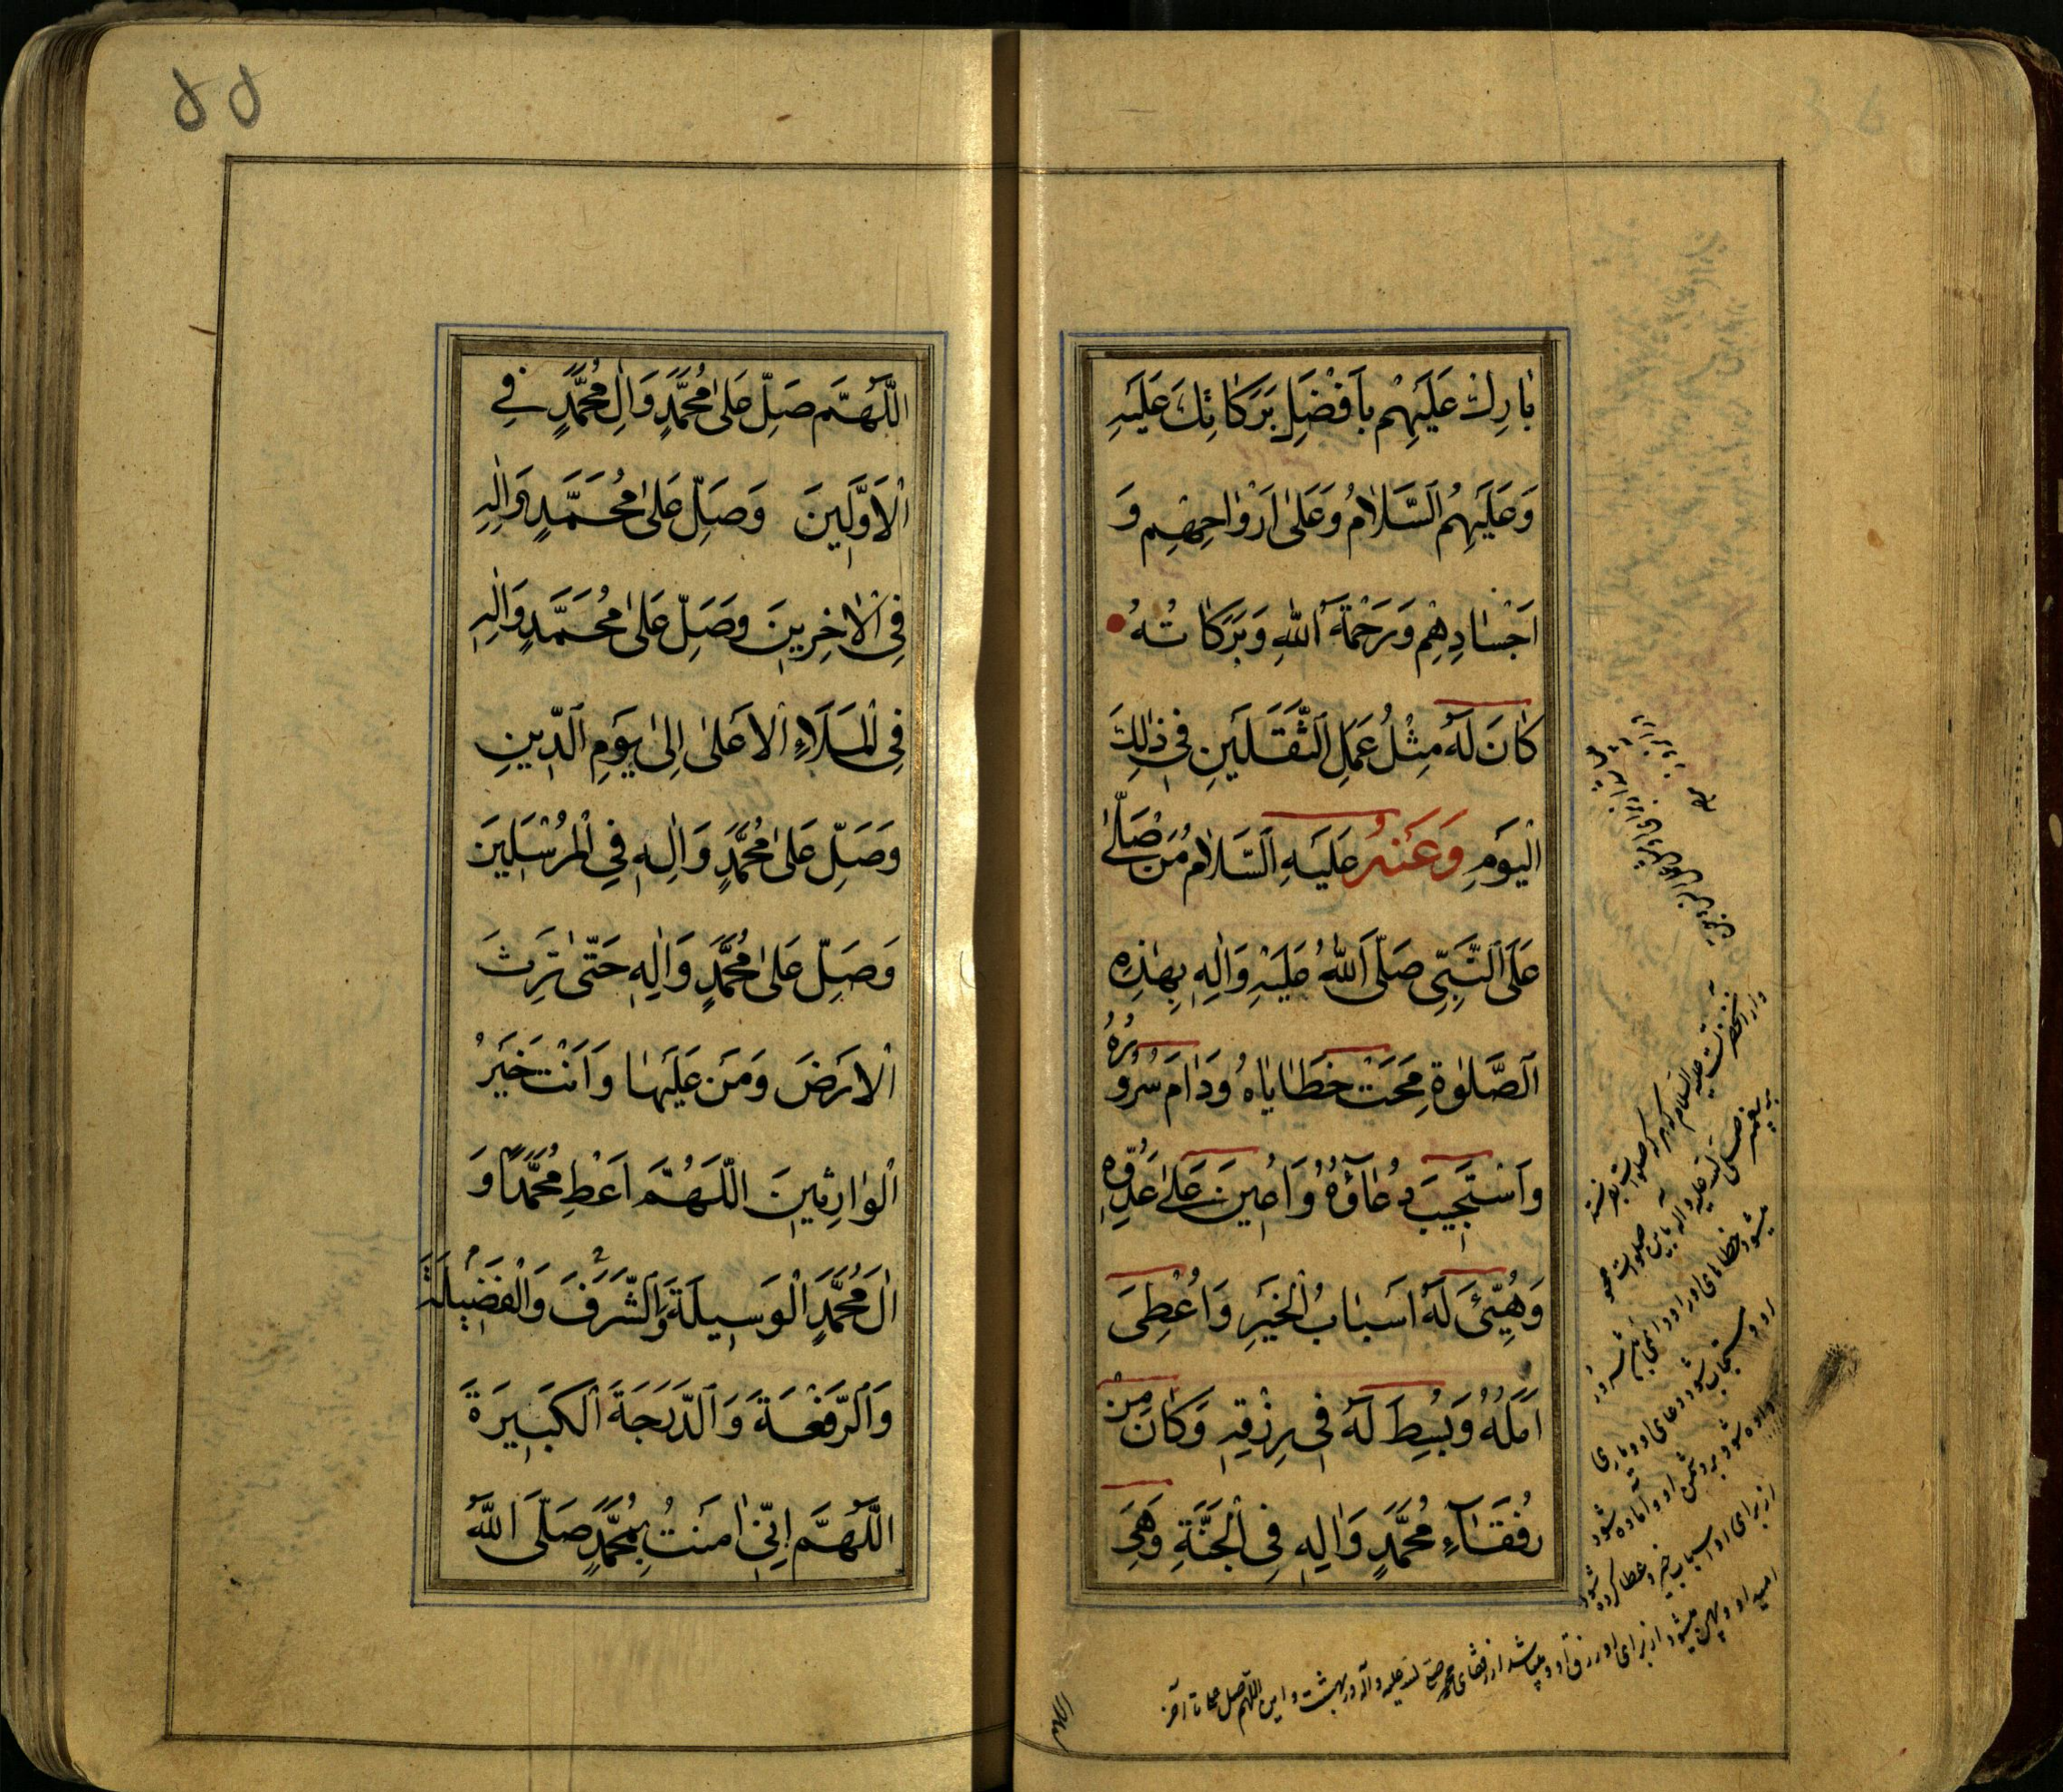 بٰارِكْ عَلَيْهِمْ بِاَفْضَلِ بَرَكٰاتِكَ عَلَيْهِ
وَعَلَيْهِمُ السَّلٰامُ وَعَلىٰ اَرْوٰاحِهِمْ وَ
اَجْسٰادِهِمْ وَرَحْمَةُ اللّٰهِ وَبَرَكٰاتُهُ
كٰانَ لَهُ مِثْلُ عَمَلِ الثَّقَلَيْنِ فِى ذٰلِكَ
الْيَوْمِ وَعَنْهُ عَلَيْهِ السَّلٰامُ مَنْ صَلّٰى
عَلَى النَّبِىِّ صَلَّى اللّٰهُ عَلَيْهِ وَاٰلِهِ بِهٰذِهِ
الصَّلوٰةِ مُحِيَتْ خَطٰايٰاهُ وَدٰامَ سُرُورُهُ
وَاسْتُجِيبَ دُعٰاؤُهُ وَاُعِينَ عَلىٰ عَدُوِّهِ
وَهُيِّئَ لَهُ اَسْبٰابُ الْخَيْرِ وَاُعْطِىَ
اَمَلَهُ وَبُسِطَ لَهُ فِى رِزْقِهِ وَكٰانَ مِنْ
رُفَقٰاءِ مُحَمَّدٍ وَاٰلِهِ فِى الْجَنَّةِ وَهِىَ
واز آنحضرت علیه السلام که هر که صلوات بفرستد
بر پیغمبر صلی الله علیه وآله باین صلوات محو
میشود خطاهای او و دائمی باشد سرور
او و مستجاب شود دعای او و یاری
داده شود بر دشمن او و آماده شود
از برای او اسباب خیر و عطا کرده شود
امید او و پهن میشود از برای او رزق او و میباشد از رفقای محمد صلی الله علیه وآله در بهشت و این اللهم صل تا آخر
اللهم
۵۵
اللّٰهُمَّ صَلِّ عَلىٰ مُحَمَّدٍ وَاٰلِ مُحَمَّدٍ فِى
الْاَوَّلِينَ وَصَلِّ عَلىٰ مُحَمَّدٍ وَاٰلِهِ
فِى الْاٰخِرِينَ وَصَلِّ عَلىٰ مُحَمَّدٍ وَاٰلِهِ
فِى الْمَلَاءِ الْاَعْلىٰ اِلىٰ يَوْمِ الدِّينِ
وَصَلِّ عَلىٰ مُحَمَّدٍ وَاٰلِهِ فِى الْمُرْسَلِينَ
وَصَلِّ عَلىٰ مُحَمَّدٍ وَاٰلِهِ حَتّٰى تَرِثَ
الْاَرْضَ وَمَنْ عَلَيْهٰا وَاَنْتَ خَيْرُ
الْوٰارِثِينَ اللّٰهُمَّ اَعْطِ مُحَمَّدًا وَ
اٰلَ مُحَمَّدٍ الْوَسِيلَةَ وَالشَّرَفَ وَالْفَضِيلَةَ
وَالرَّفْعَةَ وَالدَّرَجَةَ الْكَبِيرَةَ
اللّٰهُمَّ اِنِّى اٰمَنْتُ بِمُحَمَّدٍ صَلَّى اللّٰهُ